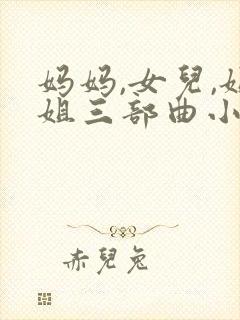 妈妈,女兒,
姐三部曲小
赤兒兔